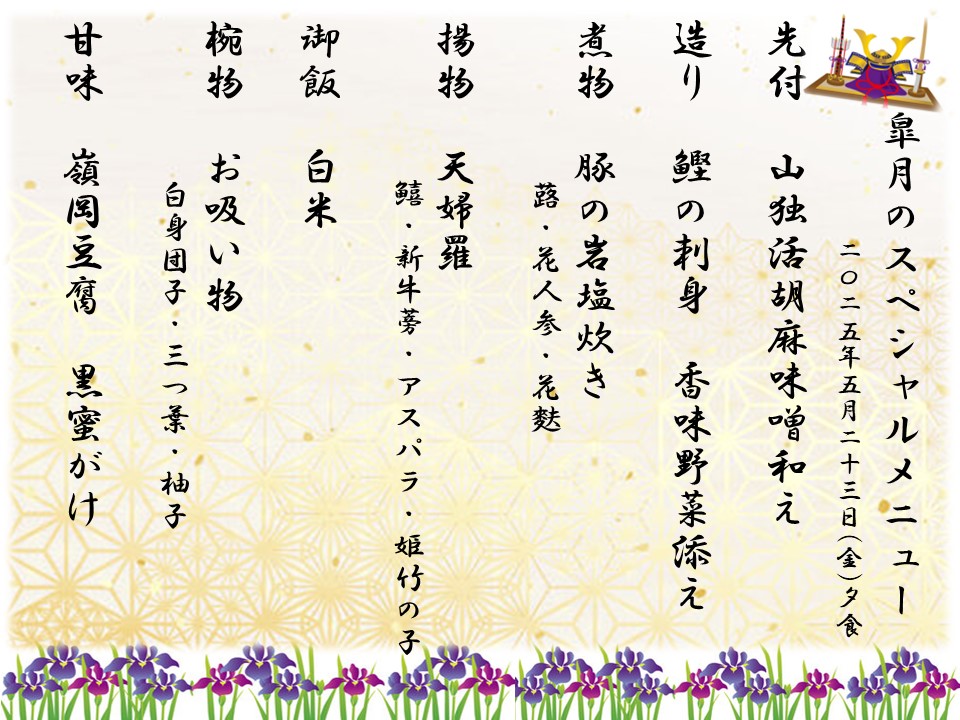 皐月のスペシャルメニュー
二〇二五年五月二十三日(金)夕食
先付 山独活胡麻味噌和え
造り 鰹の刺身 香味野菜添え
煮物 豚の岩塩炊き
蕗・花人参・花麩
揚物 天婦羅
鱚・新牛蒡・アスパラ・姫竹の子
御飯 白米
椀物 お吸い物
白身団子・三つ葉・柚子
甘味 嶺岡豆腐 黒蜜がけ